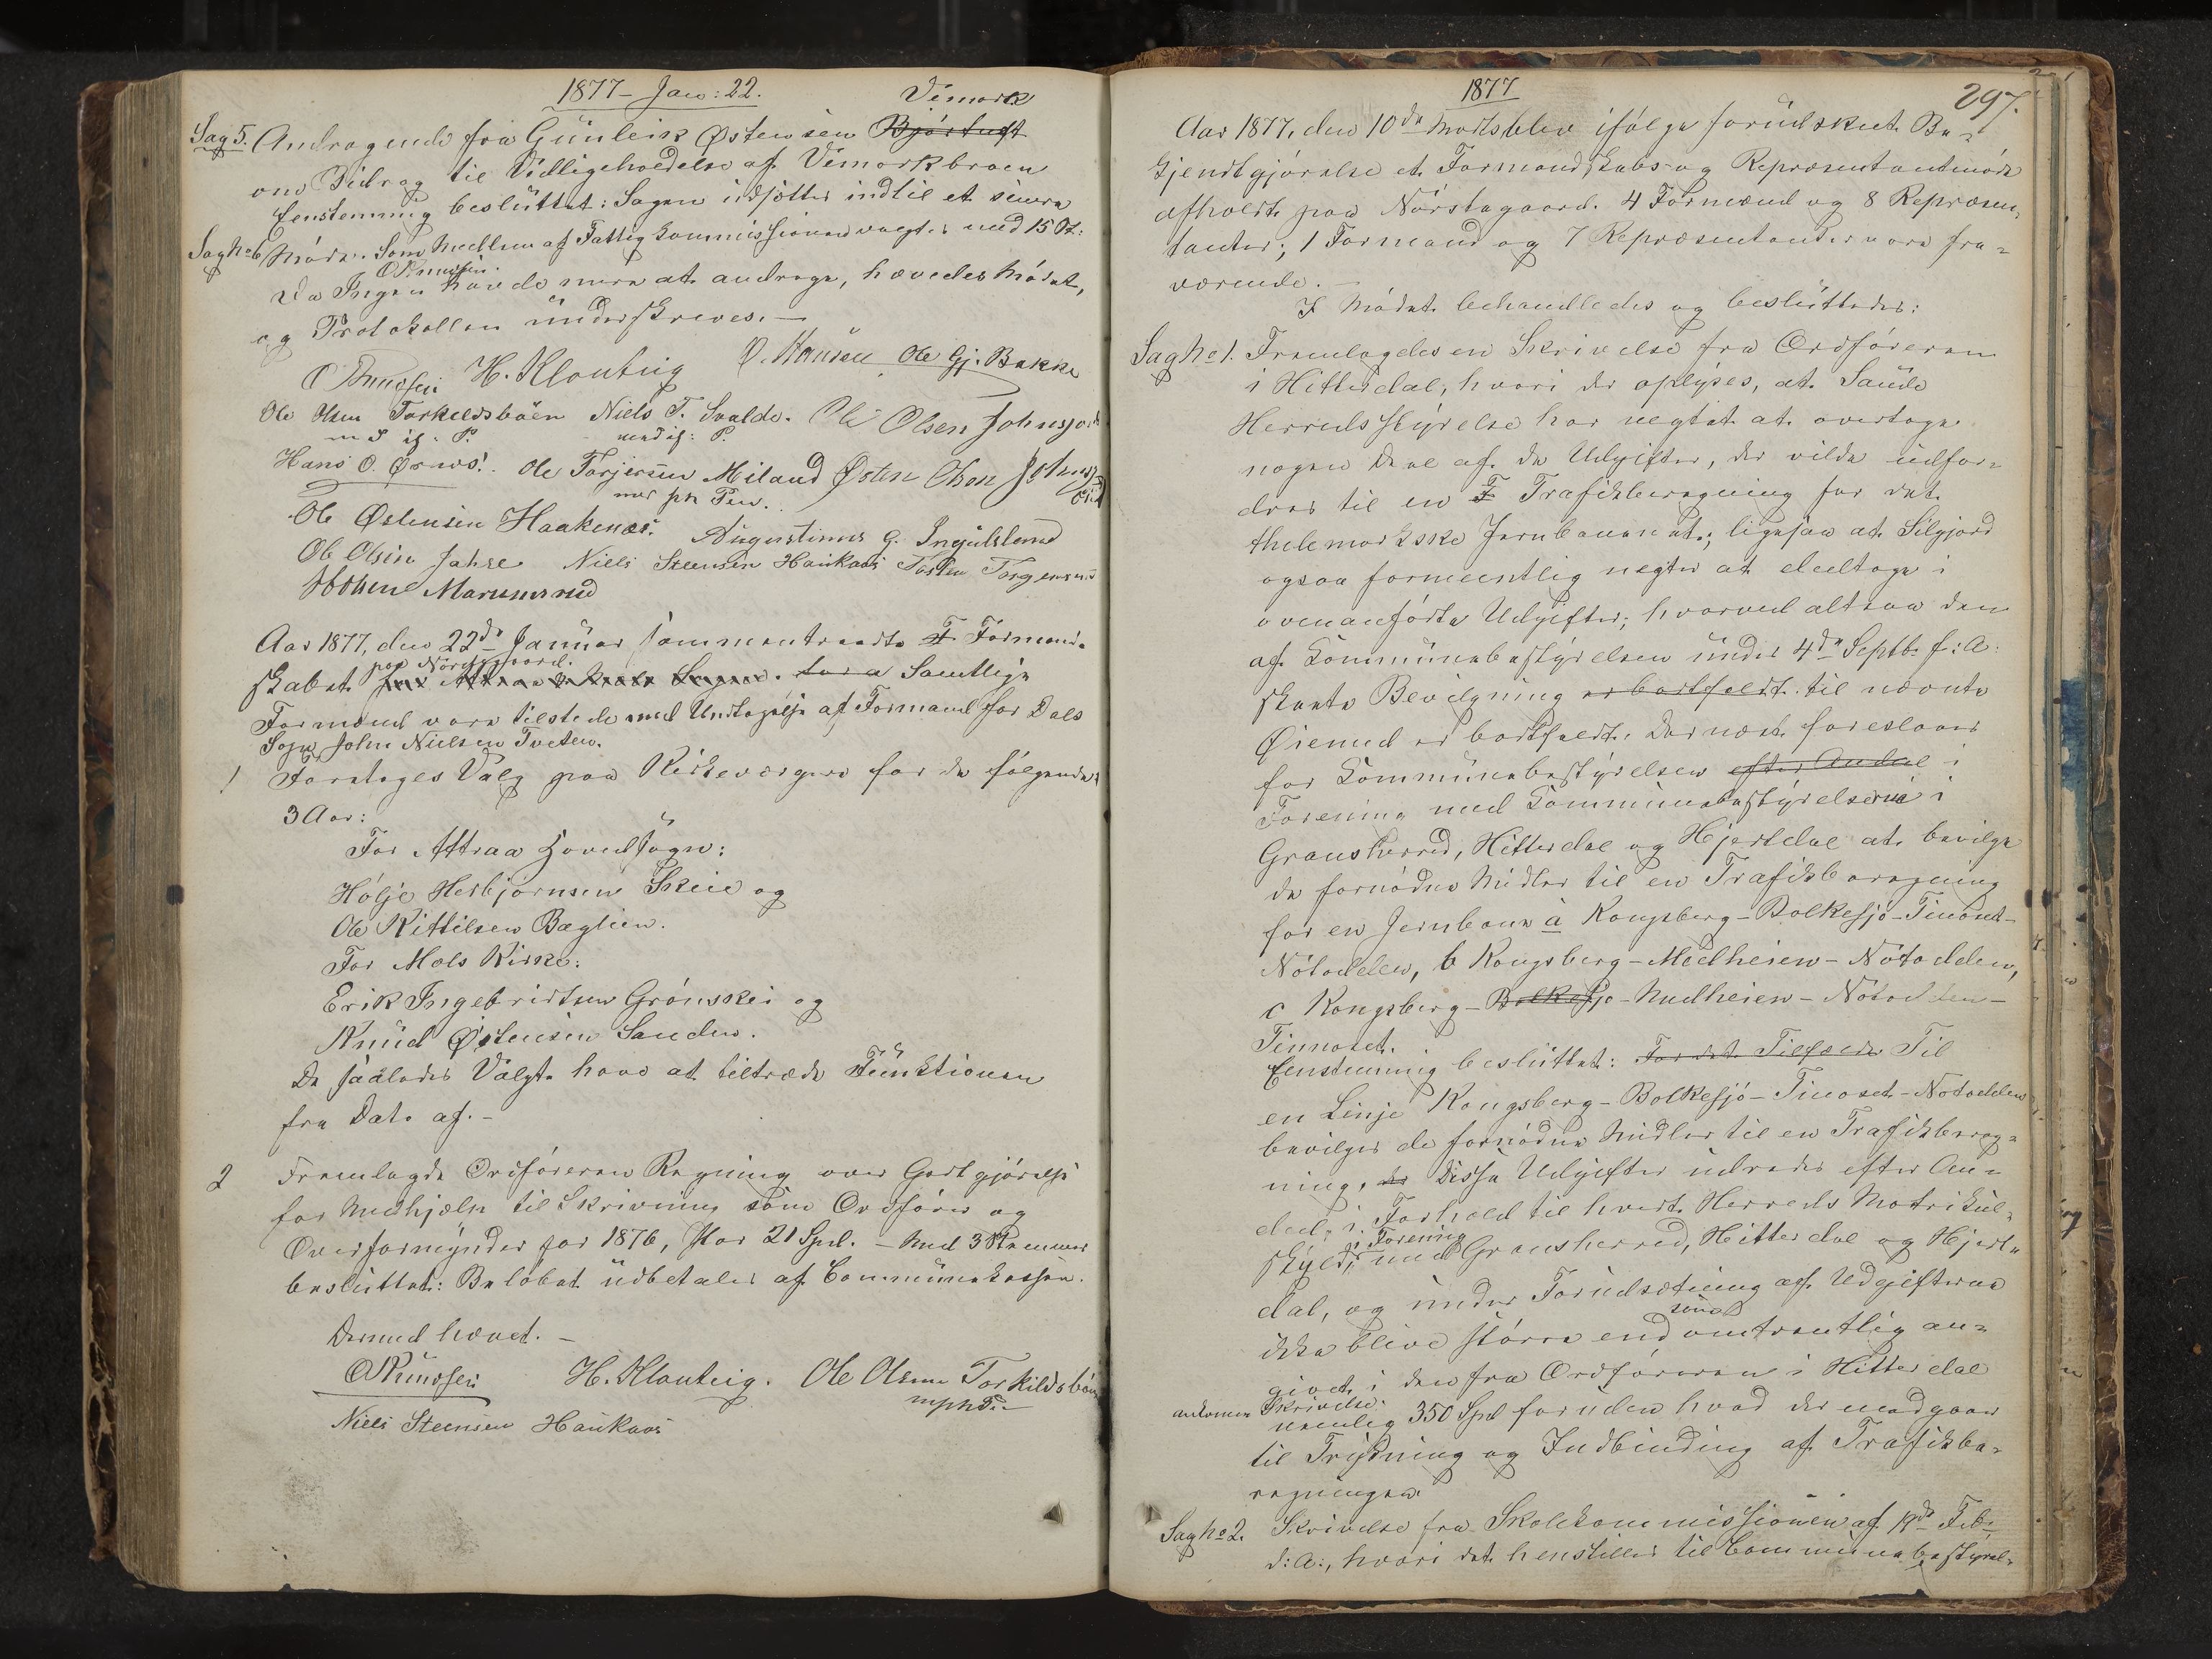 1877 - Jan: 22.
Vemork
Sag 5. Andragende fra Gunleik Østensen Bjørtuft
om Bidrag til Vedligeholdelse af Vemorkbroen
Eenstemmig besluttet: Sagen udsættes indtil et senere
Sag No 6 Møde. Som Medlem af Fattigkommissionen valgtes med 15 St:
O Knudsen.
Da Ingen havde mere at andrage, hævedes Mødet,
og Protokollen underskreves. —
O Knudsen H. Klonteig O. Hansen Ole Gj. Bakke
Ole Olsen Torkeldsbøen Niels T. Svalde. Ole Olsen Johnsjord
m. i. P. med i: P.
Hans O. Ørnes. Ole Torjersen Miland Østen Olsen Johnsj
med paah. Pen.
Ole Østensen Haakenæs. Augustinus G. Ingulsland
Ole Olsen Jahre Niels Steensen Haukaas Torsten Torgersrud
Marumsrud
Aar 1877, den 22de Januar sammentraadte F Formand-
paa Nørstegaard.
skabet for Attraa Sogn. Samtlige
Formænd vare tilstede med Undtagelse af Formand for Dals
Sogn John Nielsen Tveten.
1 Foretoges Valg paa Kirkeværgere for de følgende
3 Aar:
For Attraa Hovedsogn:
Hølje Herbjørnsen Skeie og
Ole Kittilsen Bæglien.
For Mæls Kirke:
Erik Ingebrigtsen Grønskei og
Knud Østensen Sanden.
De saaledes Valgte have at tiltræde Funktionen
fra Dato af. -
2 Fremlagde Ordføreren Regning over Godtgjørelse
for Medhjælp til Skrivning som Ordfører og
Overformynder for 1876, stor 21 Spd. - Med 3 Stemmer
besluttet: Beløbet udbetales af Communekassen.
Dermed hævet. —
O Knudsen H. Klonteig. Ole Olsen Torkildsbøen
mphP.
Niels Steensen Haukaas
1877
297.
Aar 1877, den 10de Marts blev ifølge forudskeet Be-
kjendtgjørelse et Formandskabs- og Repræsentantmøde
afholdt paa Nørstegaard. 4 Formænd og 8 Repræsen-
tanter; 1 Formand og 7 Repræsentanter vare fra-
værende. —
I Mødet behandledes og besluttedes:
Sag No 1. Fremlagdes en Skrivelse fra Ordføreren
i Hitterdal, hvori der oplyses, at Saude
Herredsstyrelse har negtet at overtage
nogen Deel af de Udgifter, der vilde udfor-
dres til en F Trafikberegning for det
thelemarkske Jernbanenet; ligesaa at Silgjord
ogsaa formeentlig negter at deeltage i
ovenanførte Udgifter; hvorved altsaa den
af Kommunebestyrelsen under 4de Septb. f: A:
skeete Bevilgning er bortfaldt til nævnte
Øiemed er bortfaldt. Dernæst foreslaaes
for Kommunebestyrelsen efter Andeel i
Forening med Kommunebestyrelserne i
Gransherred, Hitterdal og Hjertdal at bevilge
de fornødne Midler til en Trafikberegning
for en Jernbane a Kongsberg - Bolkesjø - Tinoset -
Notodden, b Kongsberg - Medheien - Notodden,
c Kongsberg - Bolkesjø - Medheien - Notodden -
Tinnoset.
Eenstemmig besluttet: For det Tilfælde Til
en Linje Kongsberg - Bolkesjø - Tinoset - Notodden
bevilges de fornødne Midler til en Trafikbereg-
ning, de Disse Udgifter udredes efter An-
deel; i Forhold til hvert Herreds Matrikul-
i Forening
skyld, med Gransherred, Hitterdal og Hjert-
dal, og under Forudsætning af Udgifterne
som
ikke blive større end omtrentlig an-
givet i den fra Ordføreren i Hitterdal
ankomne Skrivelse.
nemlig 350 Spd foruden hvad der medgaar
til Trykning og Indbinding af Trafikbe-
regningen.
Sag No 2. Skrivelse fra Skolekommissionen af 19de Feb:
d: A:, hvori det henstilles til Communebestyrel-